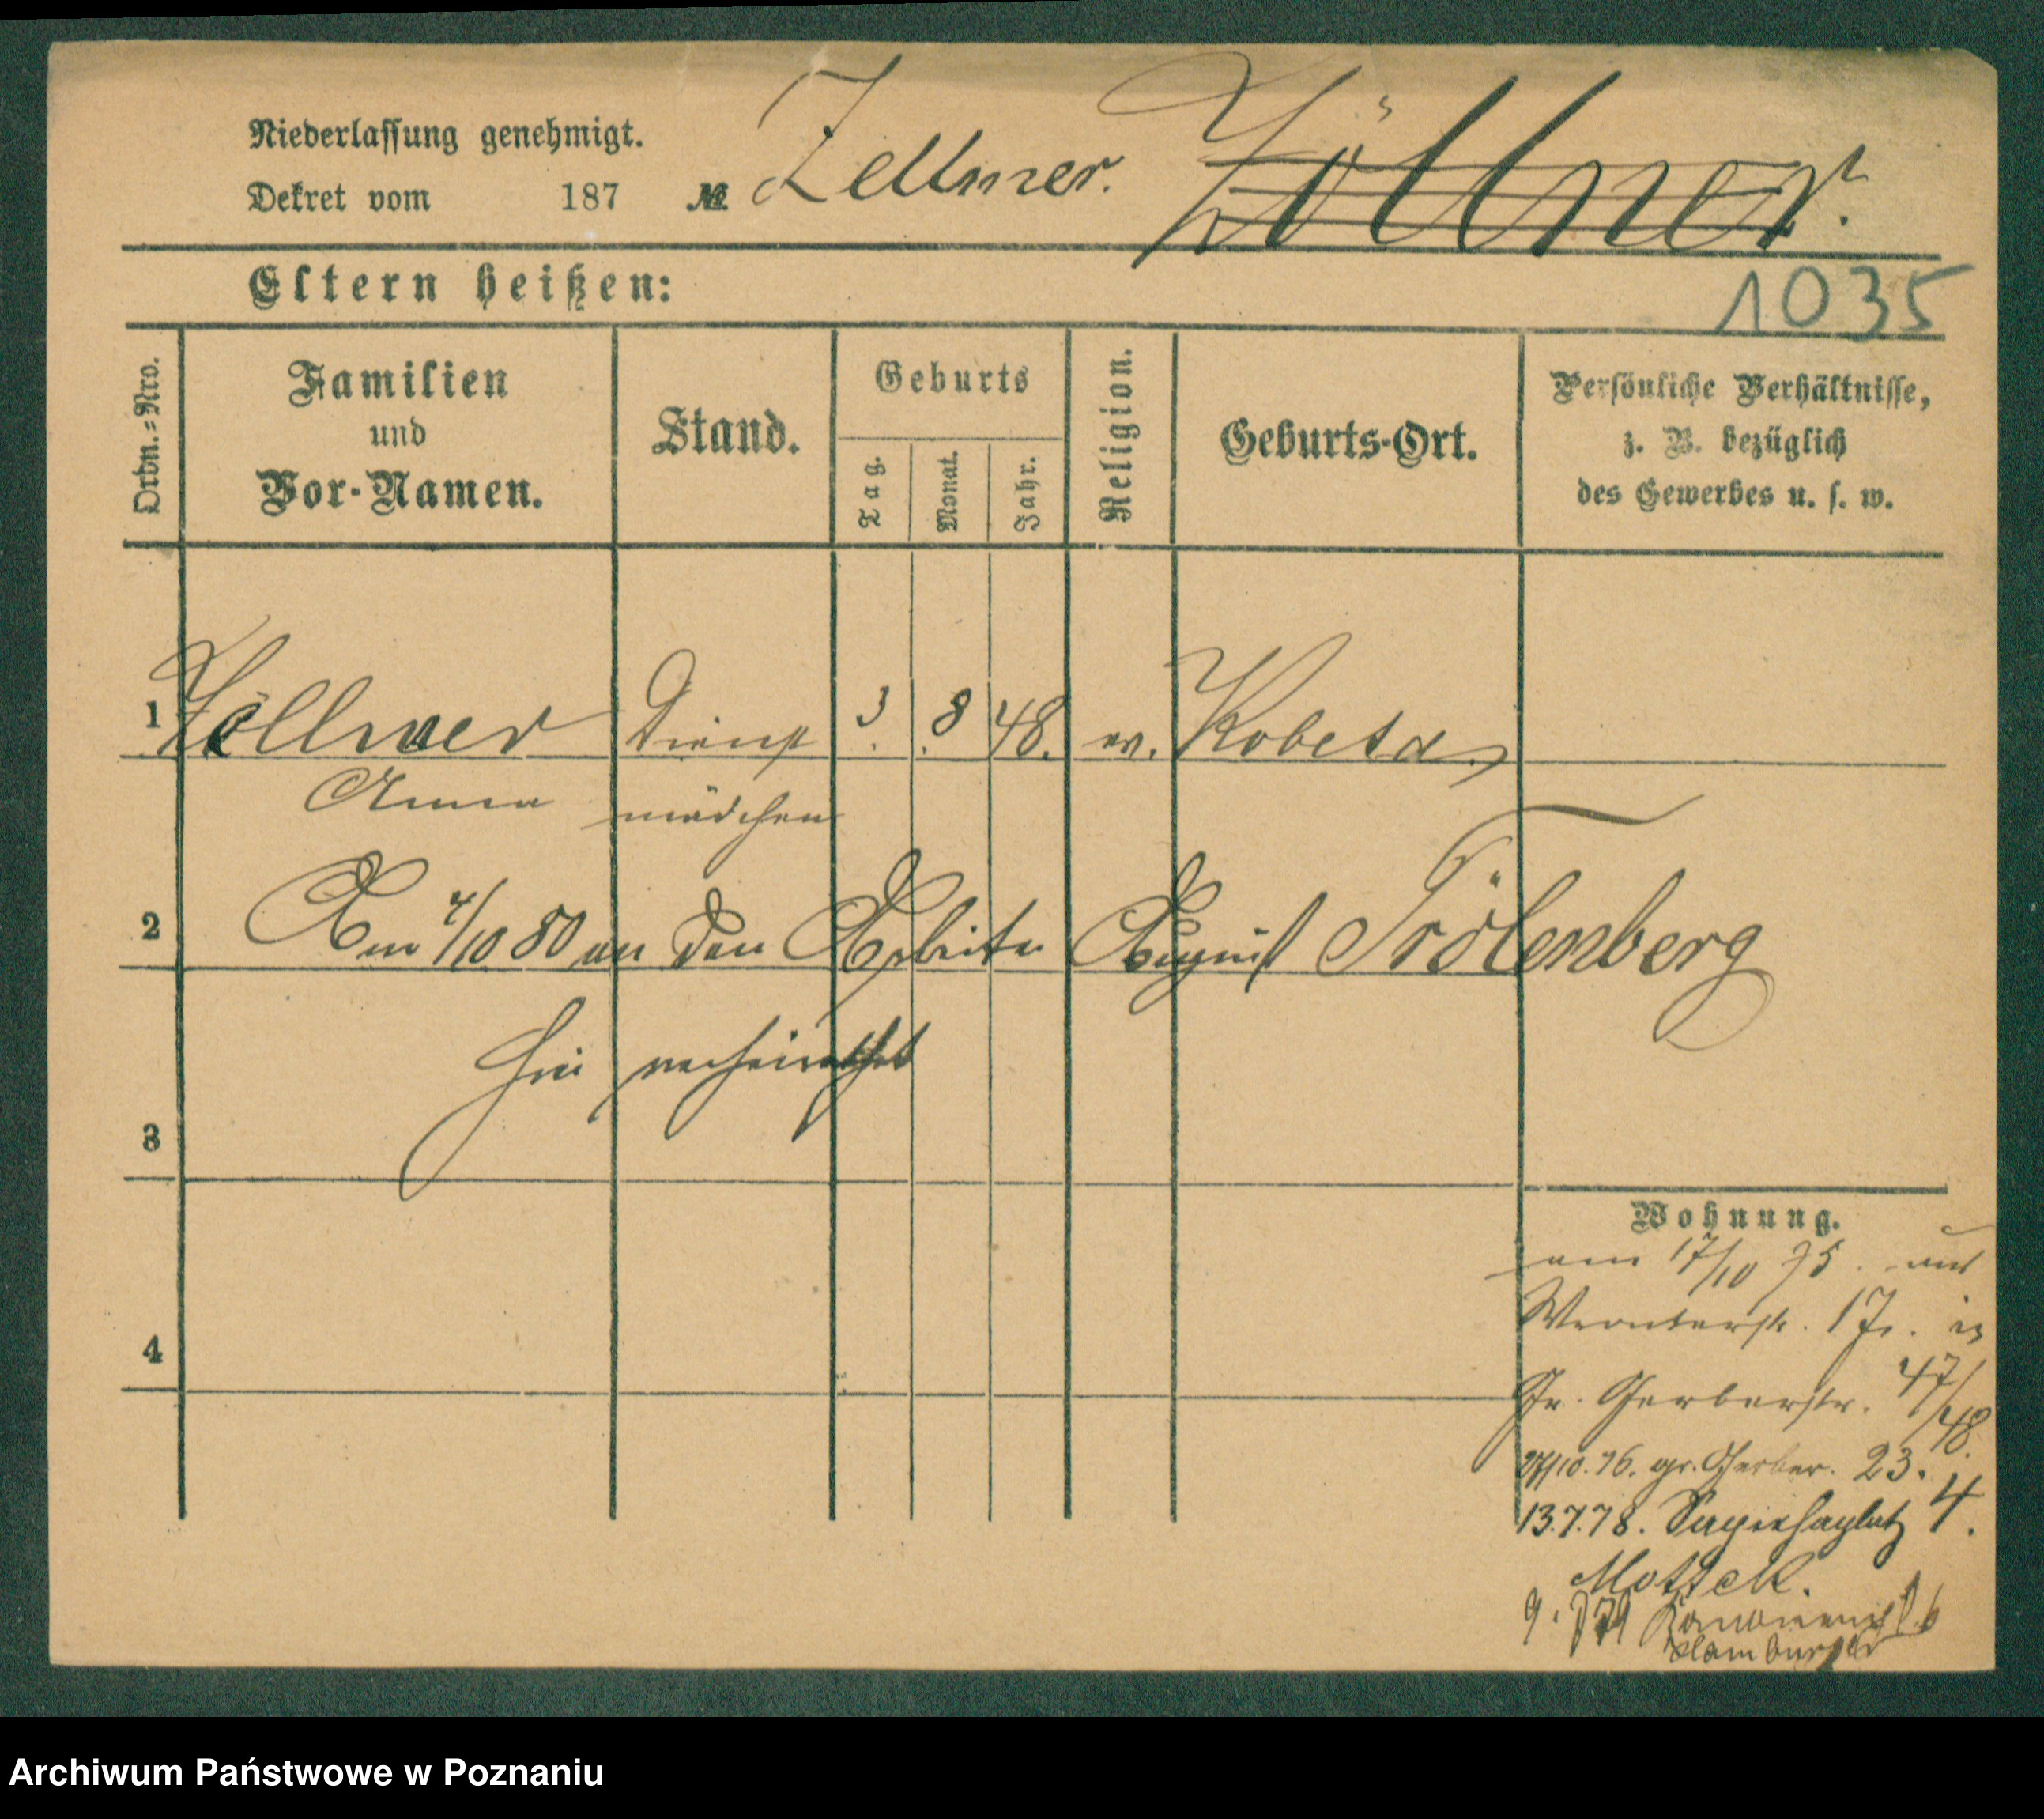 Niederlassung genehmigt.
Dekret vom 187 № Zellmer. Zöllner.
Eltern heißen:
1035
Ordn.-Nro. Familien und Vor-Namen. Stand. Geburts Tag. Monat. Jahr. Religion. Geburts-Ort. Persönliche Verhältnisse, z. B. bezüglich des Gewerbes u. s. w.
1 Zellmer Dienst 3. 8. 48. ev. Kobeta
Anna mädchen
2 Am 4/10 80 an den Arbeiter August Trölenberg
hier verheirathet
3
Wohnung.
am 17/10 75. aus
Wronkerstr. 17. in
4
Gr. Gerberstr. 47/48.
27/10. 76. gr. Gerber. 23.
13.7.78. Sapiehaplatz 4.
Mottek.
Hamburger
Archiwum Państwowe w Poznaniu